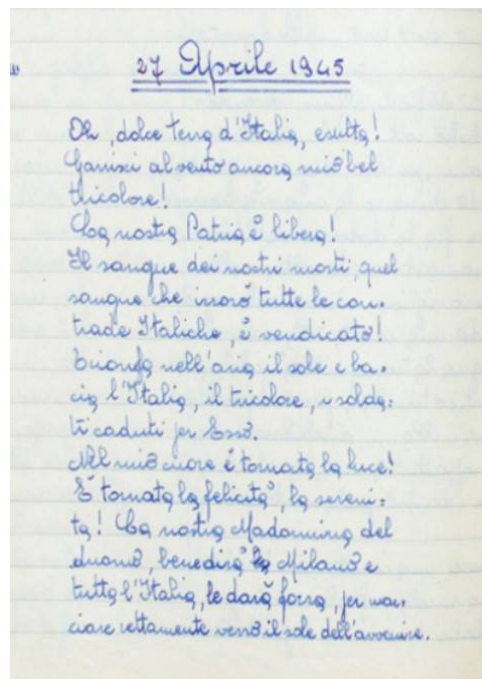 27 Aprile 1945
Oh, dolce terra d'Italia, esulta!
Garrisci al vento ancora mio bel
tricolore!
La nostra Patria è libera!
Il sangue dei nostri morti, quel
sangue che irrorò tutte le con-
trade Italiche, è vendicato!
Trionfa nell'aria il sole e ba-
cia l'Italia, il tricolore, i solda-
ti caduti per Esso.
Nel mio cuore è tornata la luce!
È tornata la felicità, la sereni-
tà! La nostra Madonnina del
duomo, benedirà la Milano e
tutta l'Italia, le darà forza, per mar-
ciare rettamente verso il sole dell'avvenire.